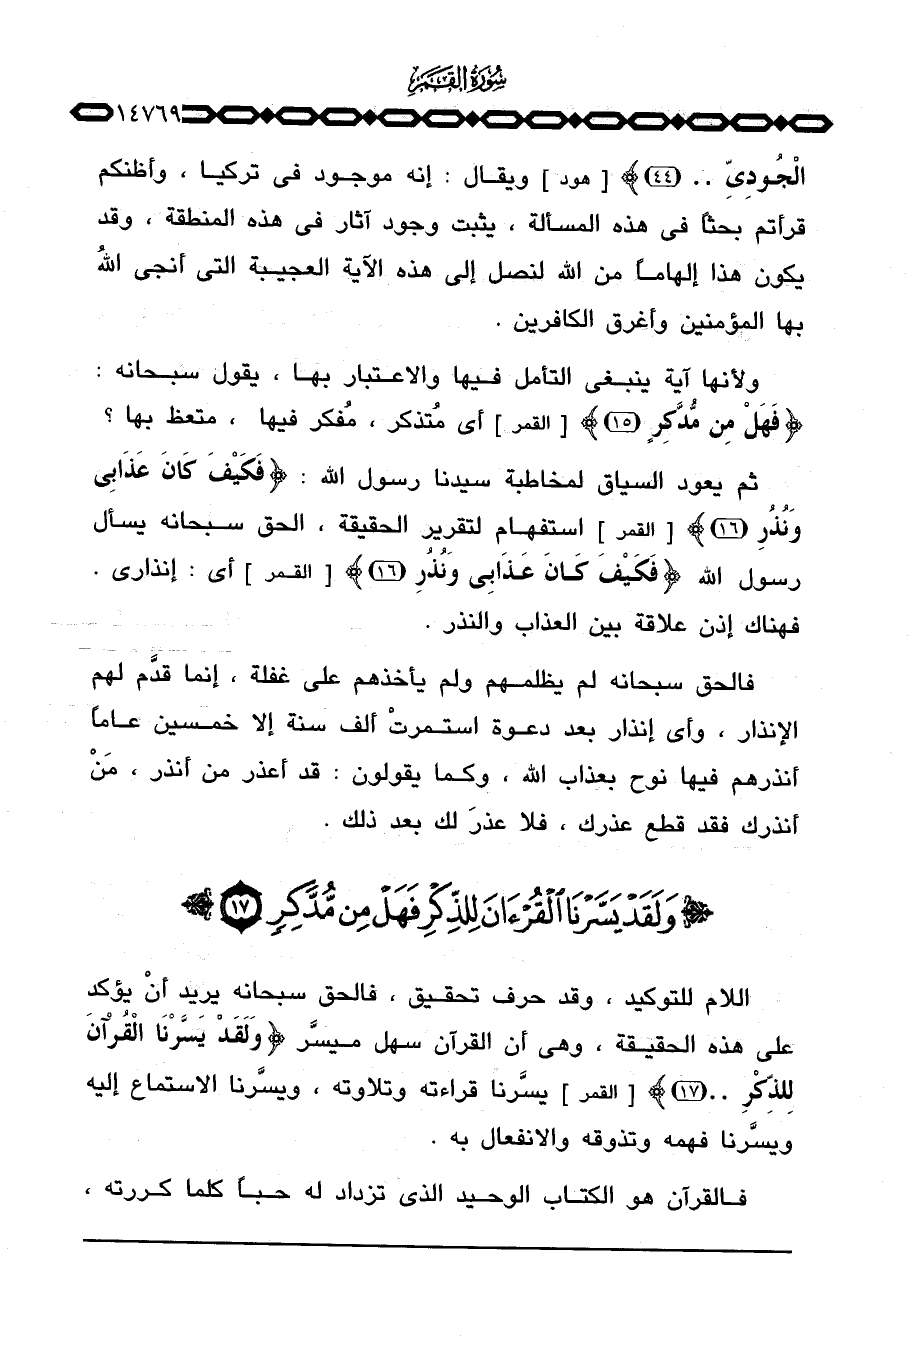 سُورَةُ القَمَرِ
١٤٧٦٩
الْجُودِىِّ .. (٤٤)﴾ [ هود ] ويقال : إنه موجود فى تركيا ، وأظنكم
قرأتم بحثاً فى هذه المسألة ، يثبت وجود آثار فى هذه المنطقة ، وقد
يكون هذا إلهاماً من الله لنصل إلى هذه الآية العجيبة التى أنجى اللهُ
بها المؤمنين وأغرق الكافرين .
ولأنها آية ينبغى التأمل فيها والاعتبار بها ، يقول سبحانه :
﴿ فَهَلْ مِن مُّدَّكِرٍ (١٥)﴾ [ القمر ] أى مُتذكر ، مُفكر فيها ، متعظ بها ؟
ثم يعود السياق لمخاطبة سيدنا رسول الله : ﴿ فَكَيْفَ كَانَ عَذَابِى
وَنُذُرِ (١٦)﴾ [ القمر ] استفهام لتقرير الحقيقة ، الحق سبحانه يسأل
رسول الله ﴿ فَكَيْفَ كَانَ عَذَابِى وَنُذُرِ (١٦)﴾ [ القمر ] أى : إنذارى .
فهناك إذن علاقة بين العذاب والنذر .
فالحق سبحانه لم يظلمهم ولم يأخذهم على غفلة ، إنما قدَّم لهم
الإنذار ، وأى إنذار بعد دعوة استمرتْ ألف سنة إلا خمسين عاماً
أنذرهم فيها نوح بعذاب الله ، وكما يقولون : قد أعذر من أنذر ، مَنْ
أنذرك فقد قطع عذرك ، فلا عذرَ لك بعد ذلك .
﴿ وَلَقَدْ يَسَّرْنَا الْقُرْءَانَ لِلذِّكْرِ فَهَلْ مِن مُّدَّكِرٍ ١٧ ﴾
اللام للتوكيد ، وقد حرف تحقيق ، فالحق سبحانه يريد أنْ يؤكد
على هذه الحقيقة ، وهى أن القرآن سهل ميسَّر ﴿ وَلَقَدْ يَسَّرْنَا الْقُرْآنَ
لِلذِّكْرِ ..(١٧)﴾ [ القمر ] يسَّرنا قراءته وتلاوته ، ويسَّرنا الاستماع إليه
ويسَّرنا فهمه وتذوقه والانفعال به .
فالقرآن هو الكتاب الوحيد الذى تزداد له حباً كلما كررته ،